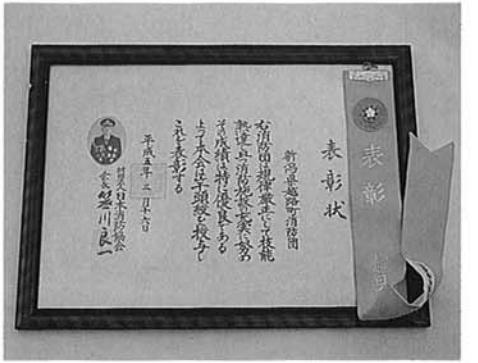 表彰状
新潟県越路町消防団
右消防団は規律厳正にして技能
熟達し且消防施設充実に努め
その成績は特に優良である
よって本会は竿頭綬を授与し
これを表彰する
平成五年三月十六日
財団法人日本消防協会
会長 笹川良一
表彰